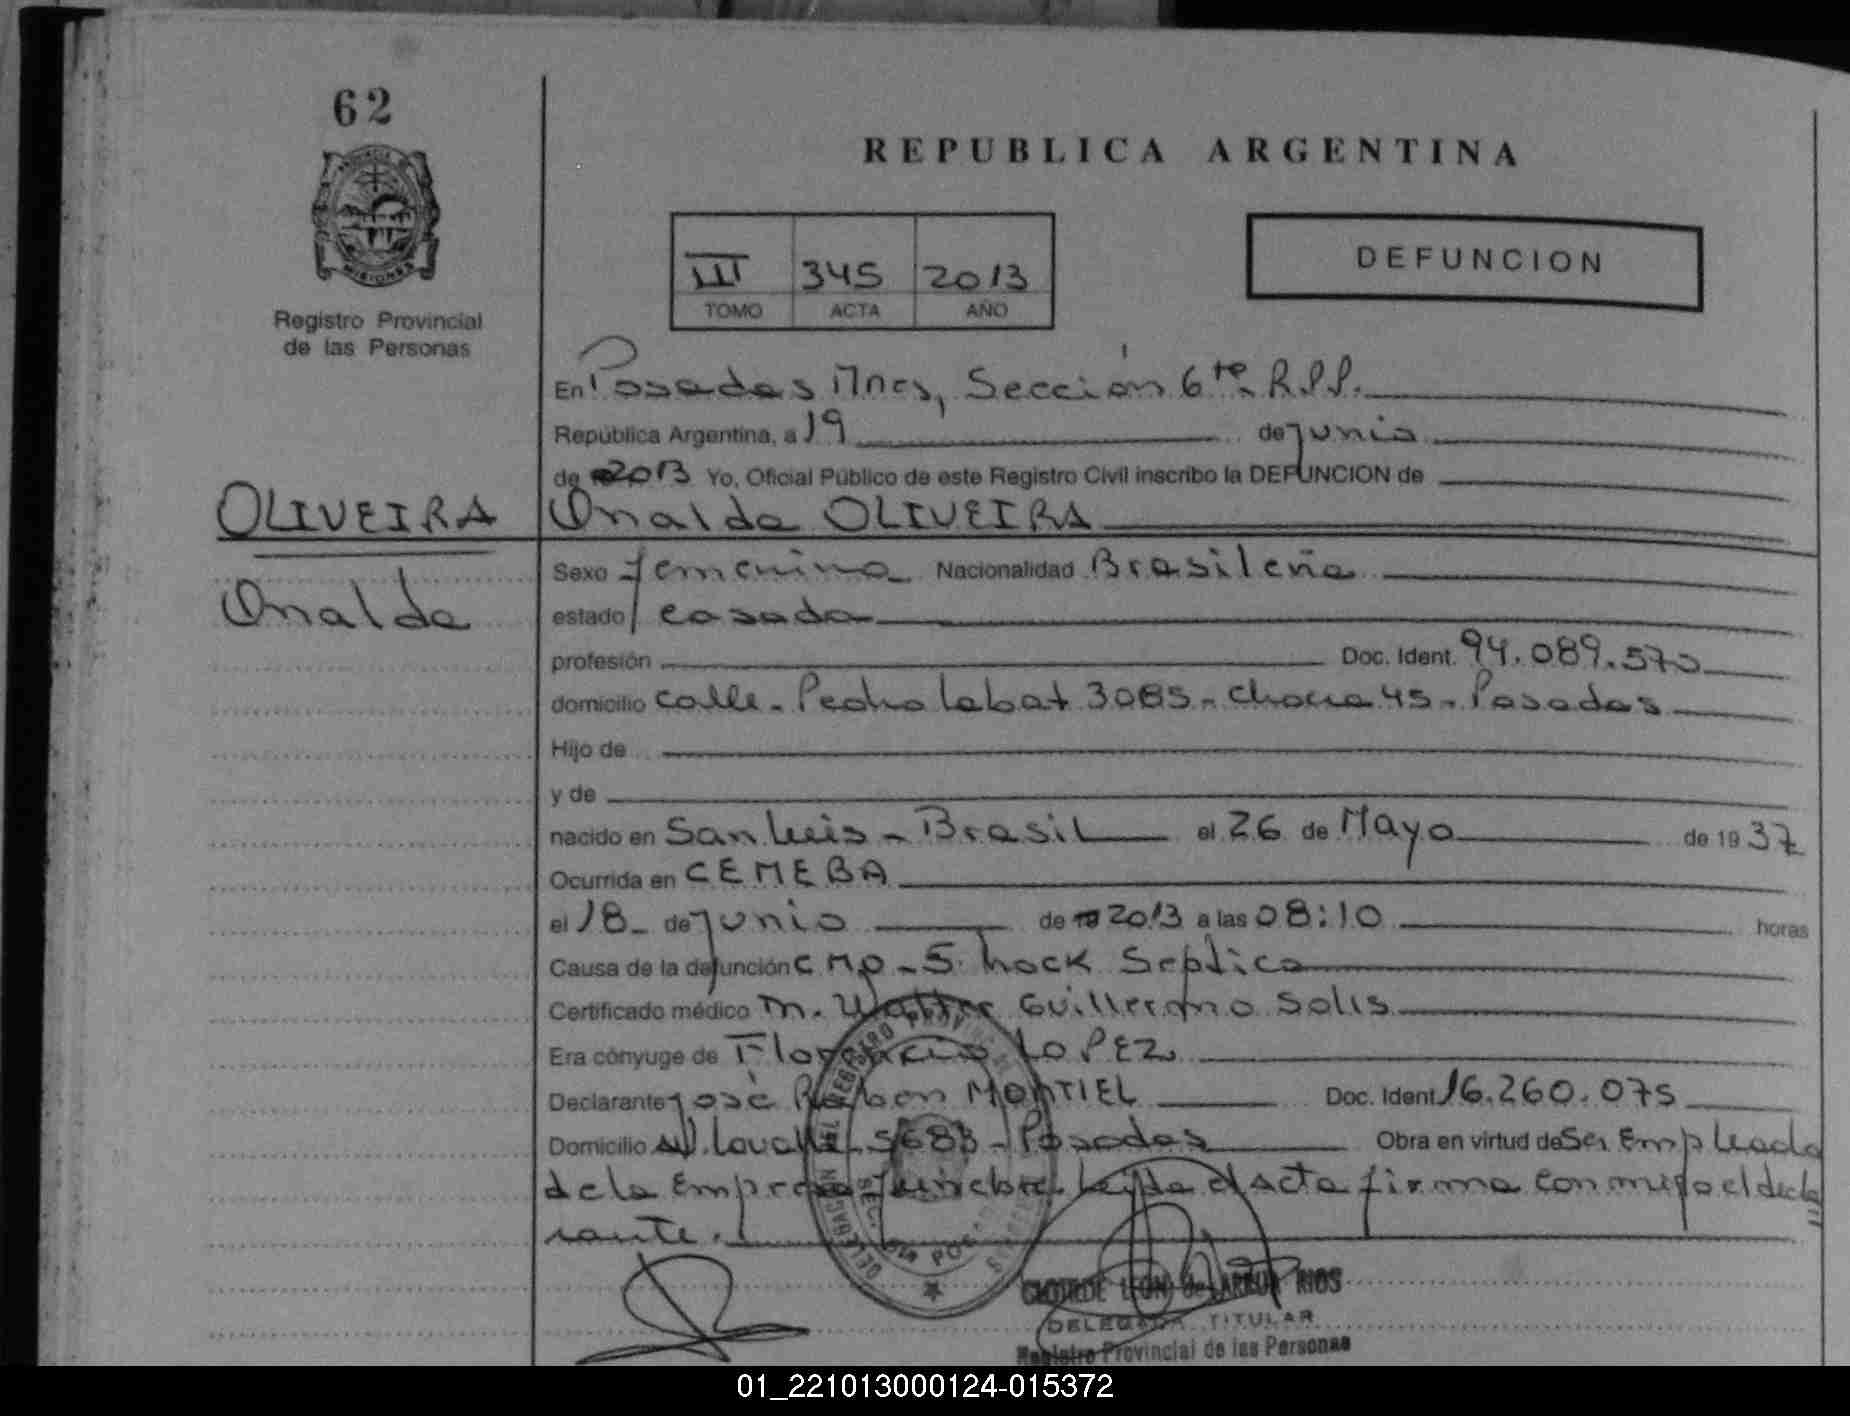 62
MISIONES
Registro Provincial
de las Personas
REPUBLICA ARGENTINA
III 345 2013
TOMO ACTA AÑO
DEFUNCION
En Posadas Mnes, Sección 6ta. R.P.P.
República Argentina, a 19 de junio
de 2013 Yo, Oficial Público de este Registro Civil inscribo la DEFUNCION de
OLIVEIRA
Onalda
Onalda OLIVEIRA
Sexo femenino Nacionalidad Brasileña
estado casada
profesión Doc. Ident. 94.089.570
domicilio calle - Pedro Labat 3085 - Chacra 45 - Posadas
Hijo de
y de
nacido en San Luis - Brasil el 26 de Mayo de 1937
Ocurrida en CEMEBA
el 18 de junio de 2013 a las 08:10 horas
Causa de la defunción CMP - Shock Septico
Certificado médico M. Walter Guillermo Solis
Era cónyuge de LOPEZ
Declarante José MONTIEL Doc. Ident. 16.260.075
Domicilio Lavalle 5683 - Posadas Obra en virtud de Ser Empleado
de la Empresa funebre. Leyda el acta firma conmigo el decla
rante.
DELEGACION DEL REGISTRO PROVINCIAL
SEC.
CLOTILDE LEON de ARRUA RIOS
DELEGADA TITULAR
Registro Provincial de las Personas
01_221013000124-015372